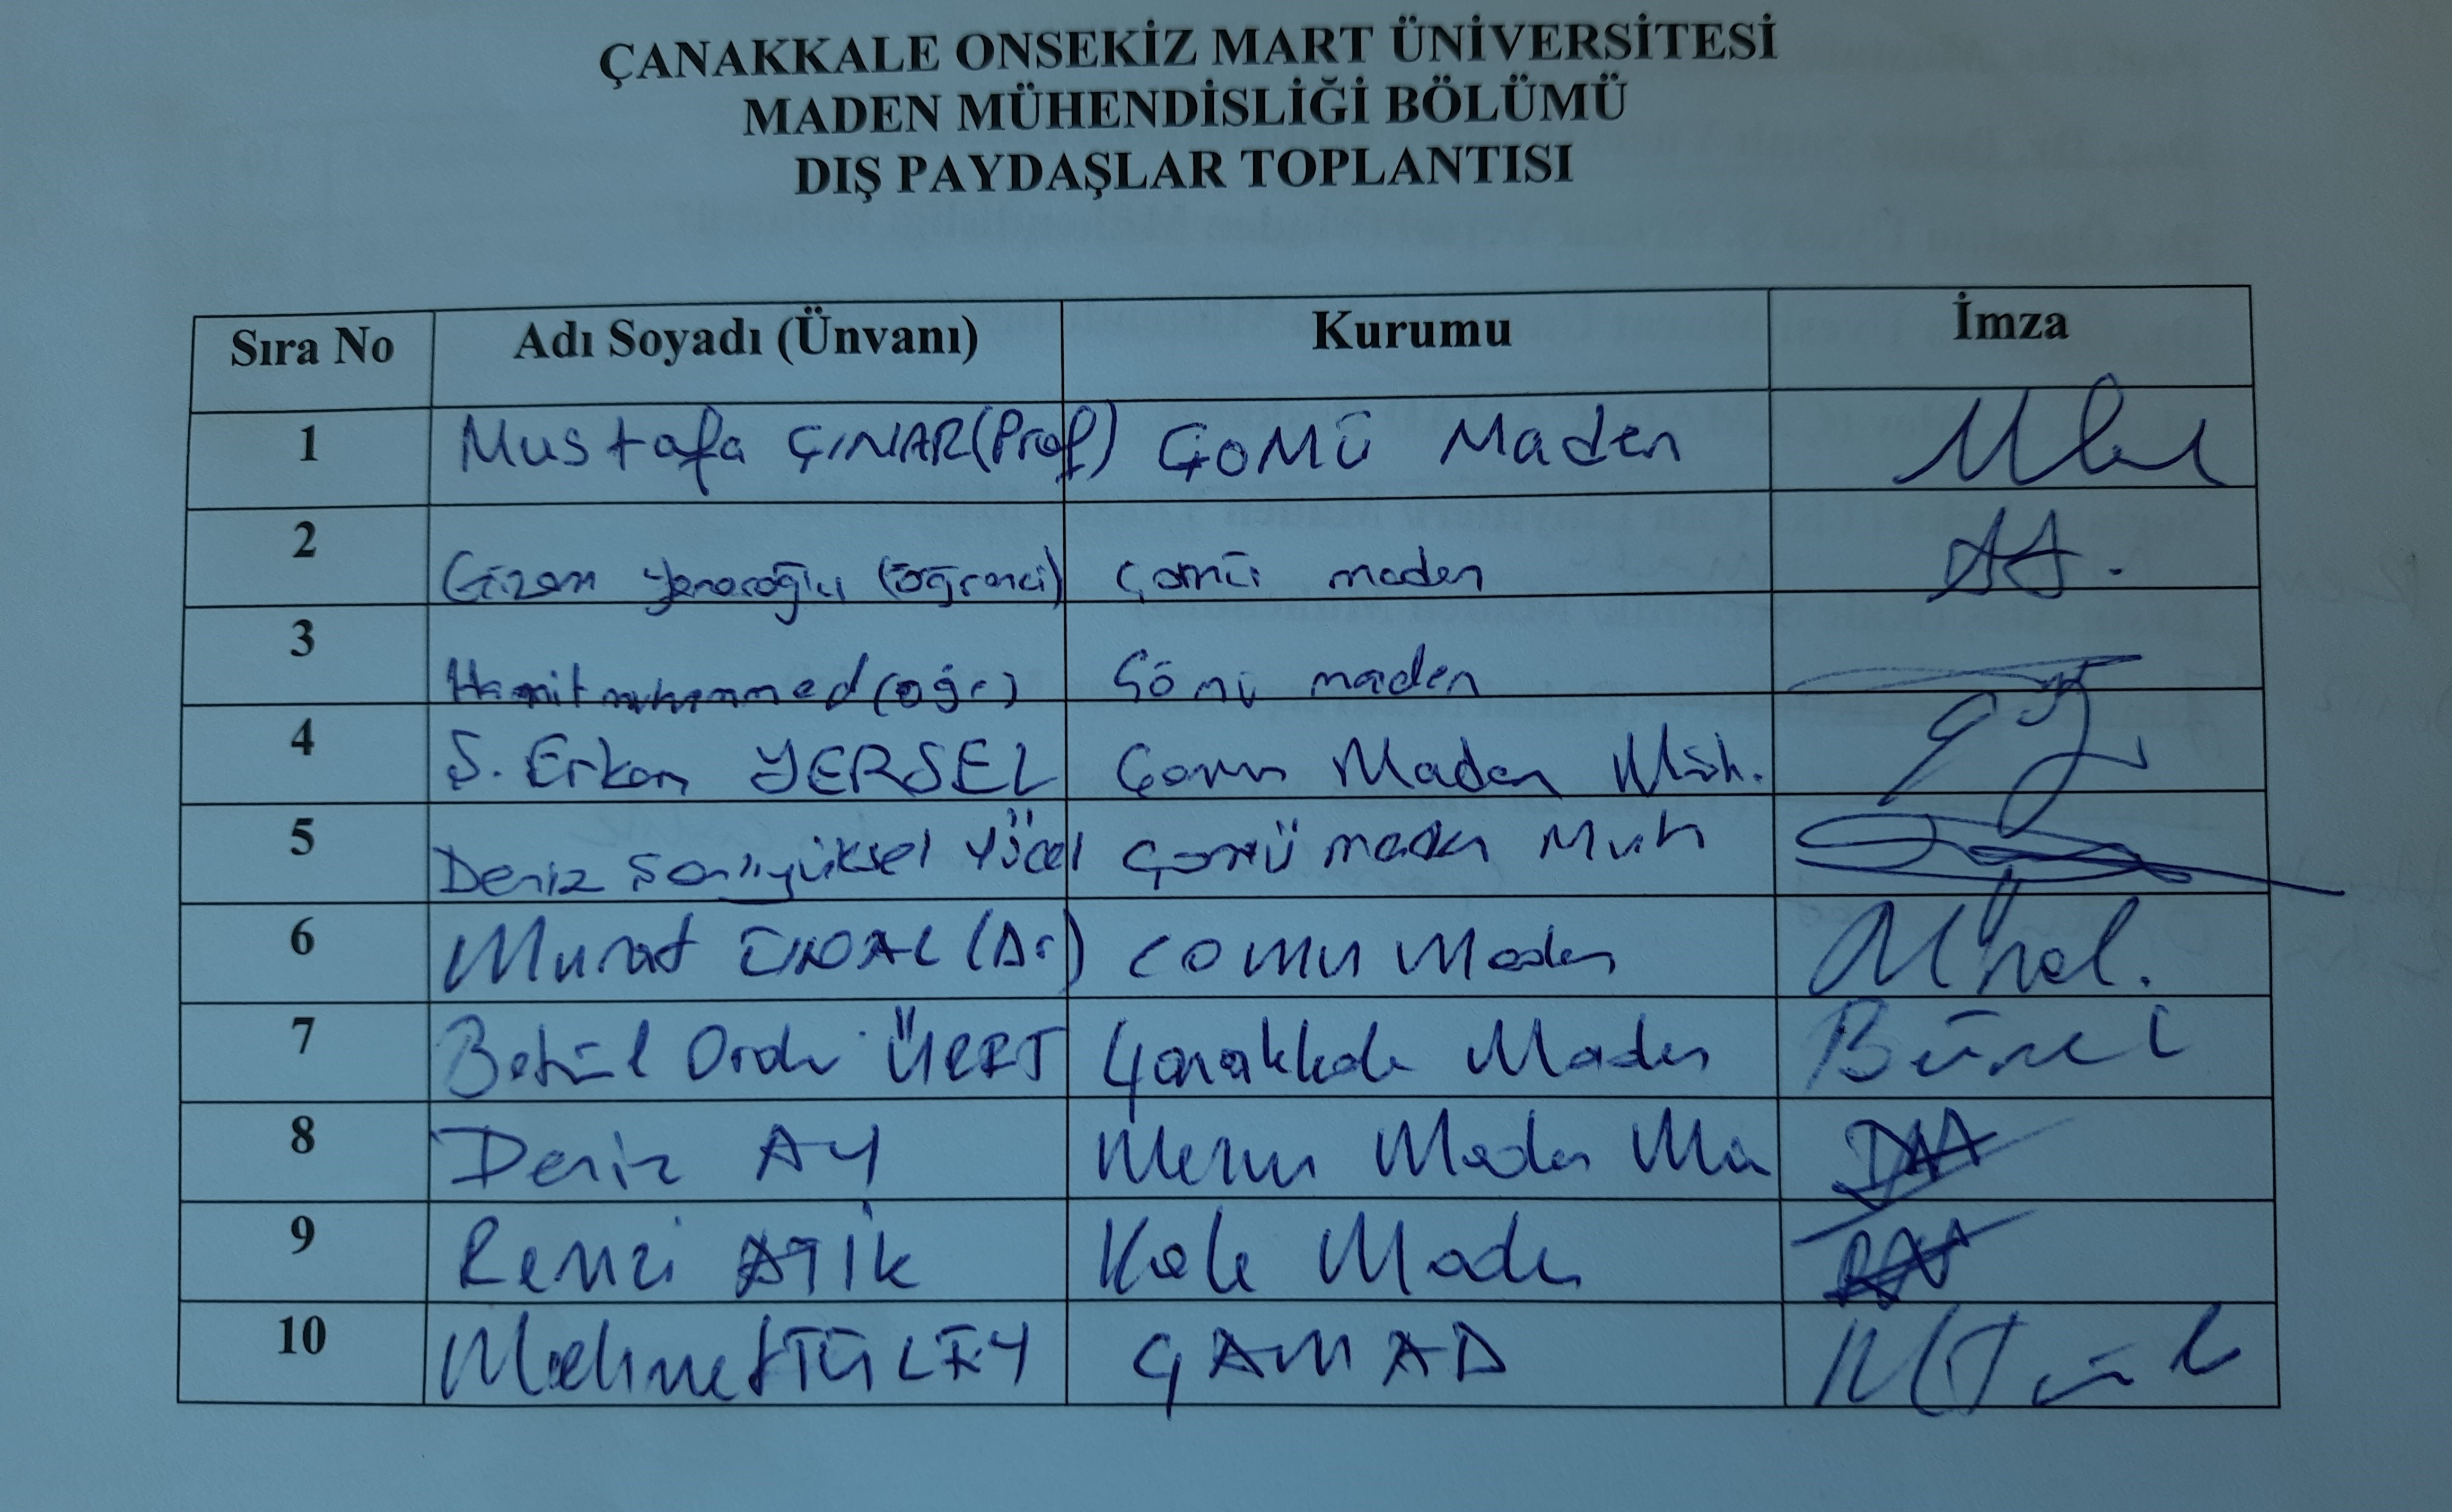 ÇANAKKALE ONSEKİZ MART ÜNİVERSİTESİ
MADEN MÜHENDİSLİĞİ BÖLÜMÜ
DIŞ PAYDAŞLAR TOPLANTISI
Sıra No Adı Soyadı (Ünvanı) Kurumu İmza
1 Mustafa ÇINAR (Prof) ÇOMÜ Maden
2 Gizem (öğrenci) Çomü maden
3 Hamit muhammed (öğr) Çömü maden
4 Ş. Erkan YERSEL Çomü Maden Müh.
5 Deniz Şanlıyüksel Yücel Çomü maden Muh
6 Murat ÜNAL (Dr) COMU Maden
7 Betül Ordu Çanakkale Maden
8 Deniz AY Maden Mü
9 Remzi ATİK Kale Maden
10 Mehmet TÜLEY ÇAMAD